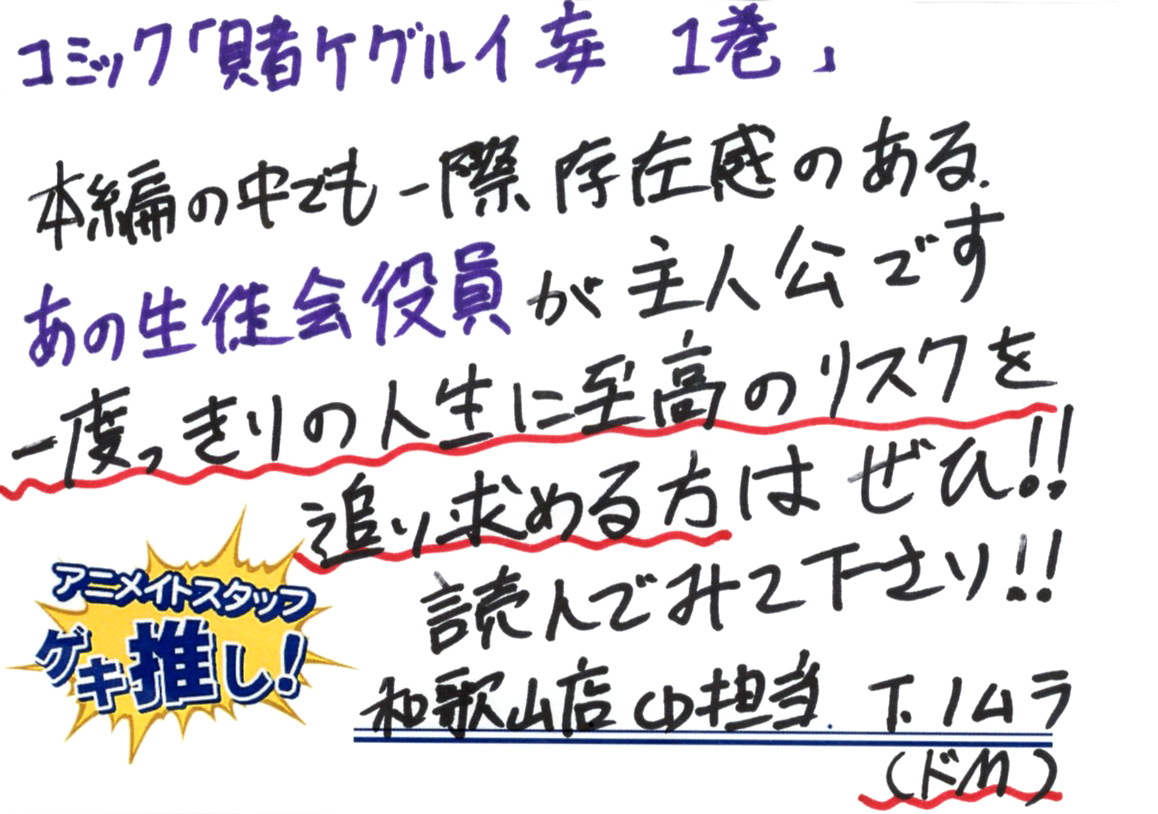 コミック「賭ケグルイ妄 1巻」
本編の中でも一際存在感のある.
あの生徒会役員が主人公です
一度っきりの人生に至高のリスクを
追い求める方はぜひ!!
読んでみて下さい!!
アニメイトスタッフ
ゲキ推し!
和歌山店 CD担当. T.ノムラ
(ドM)